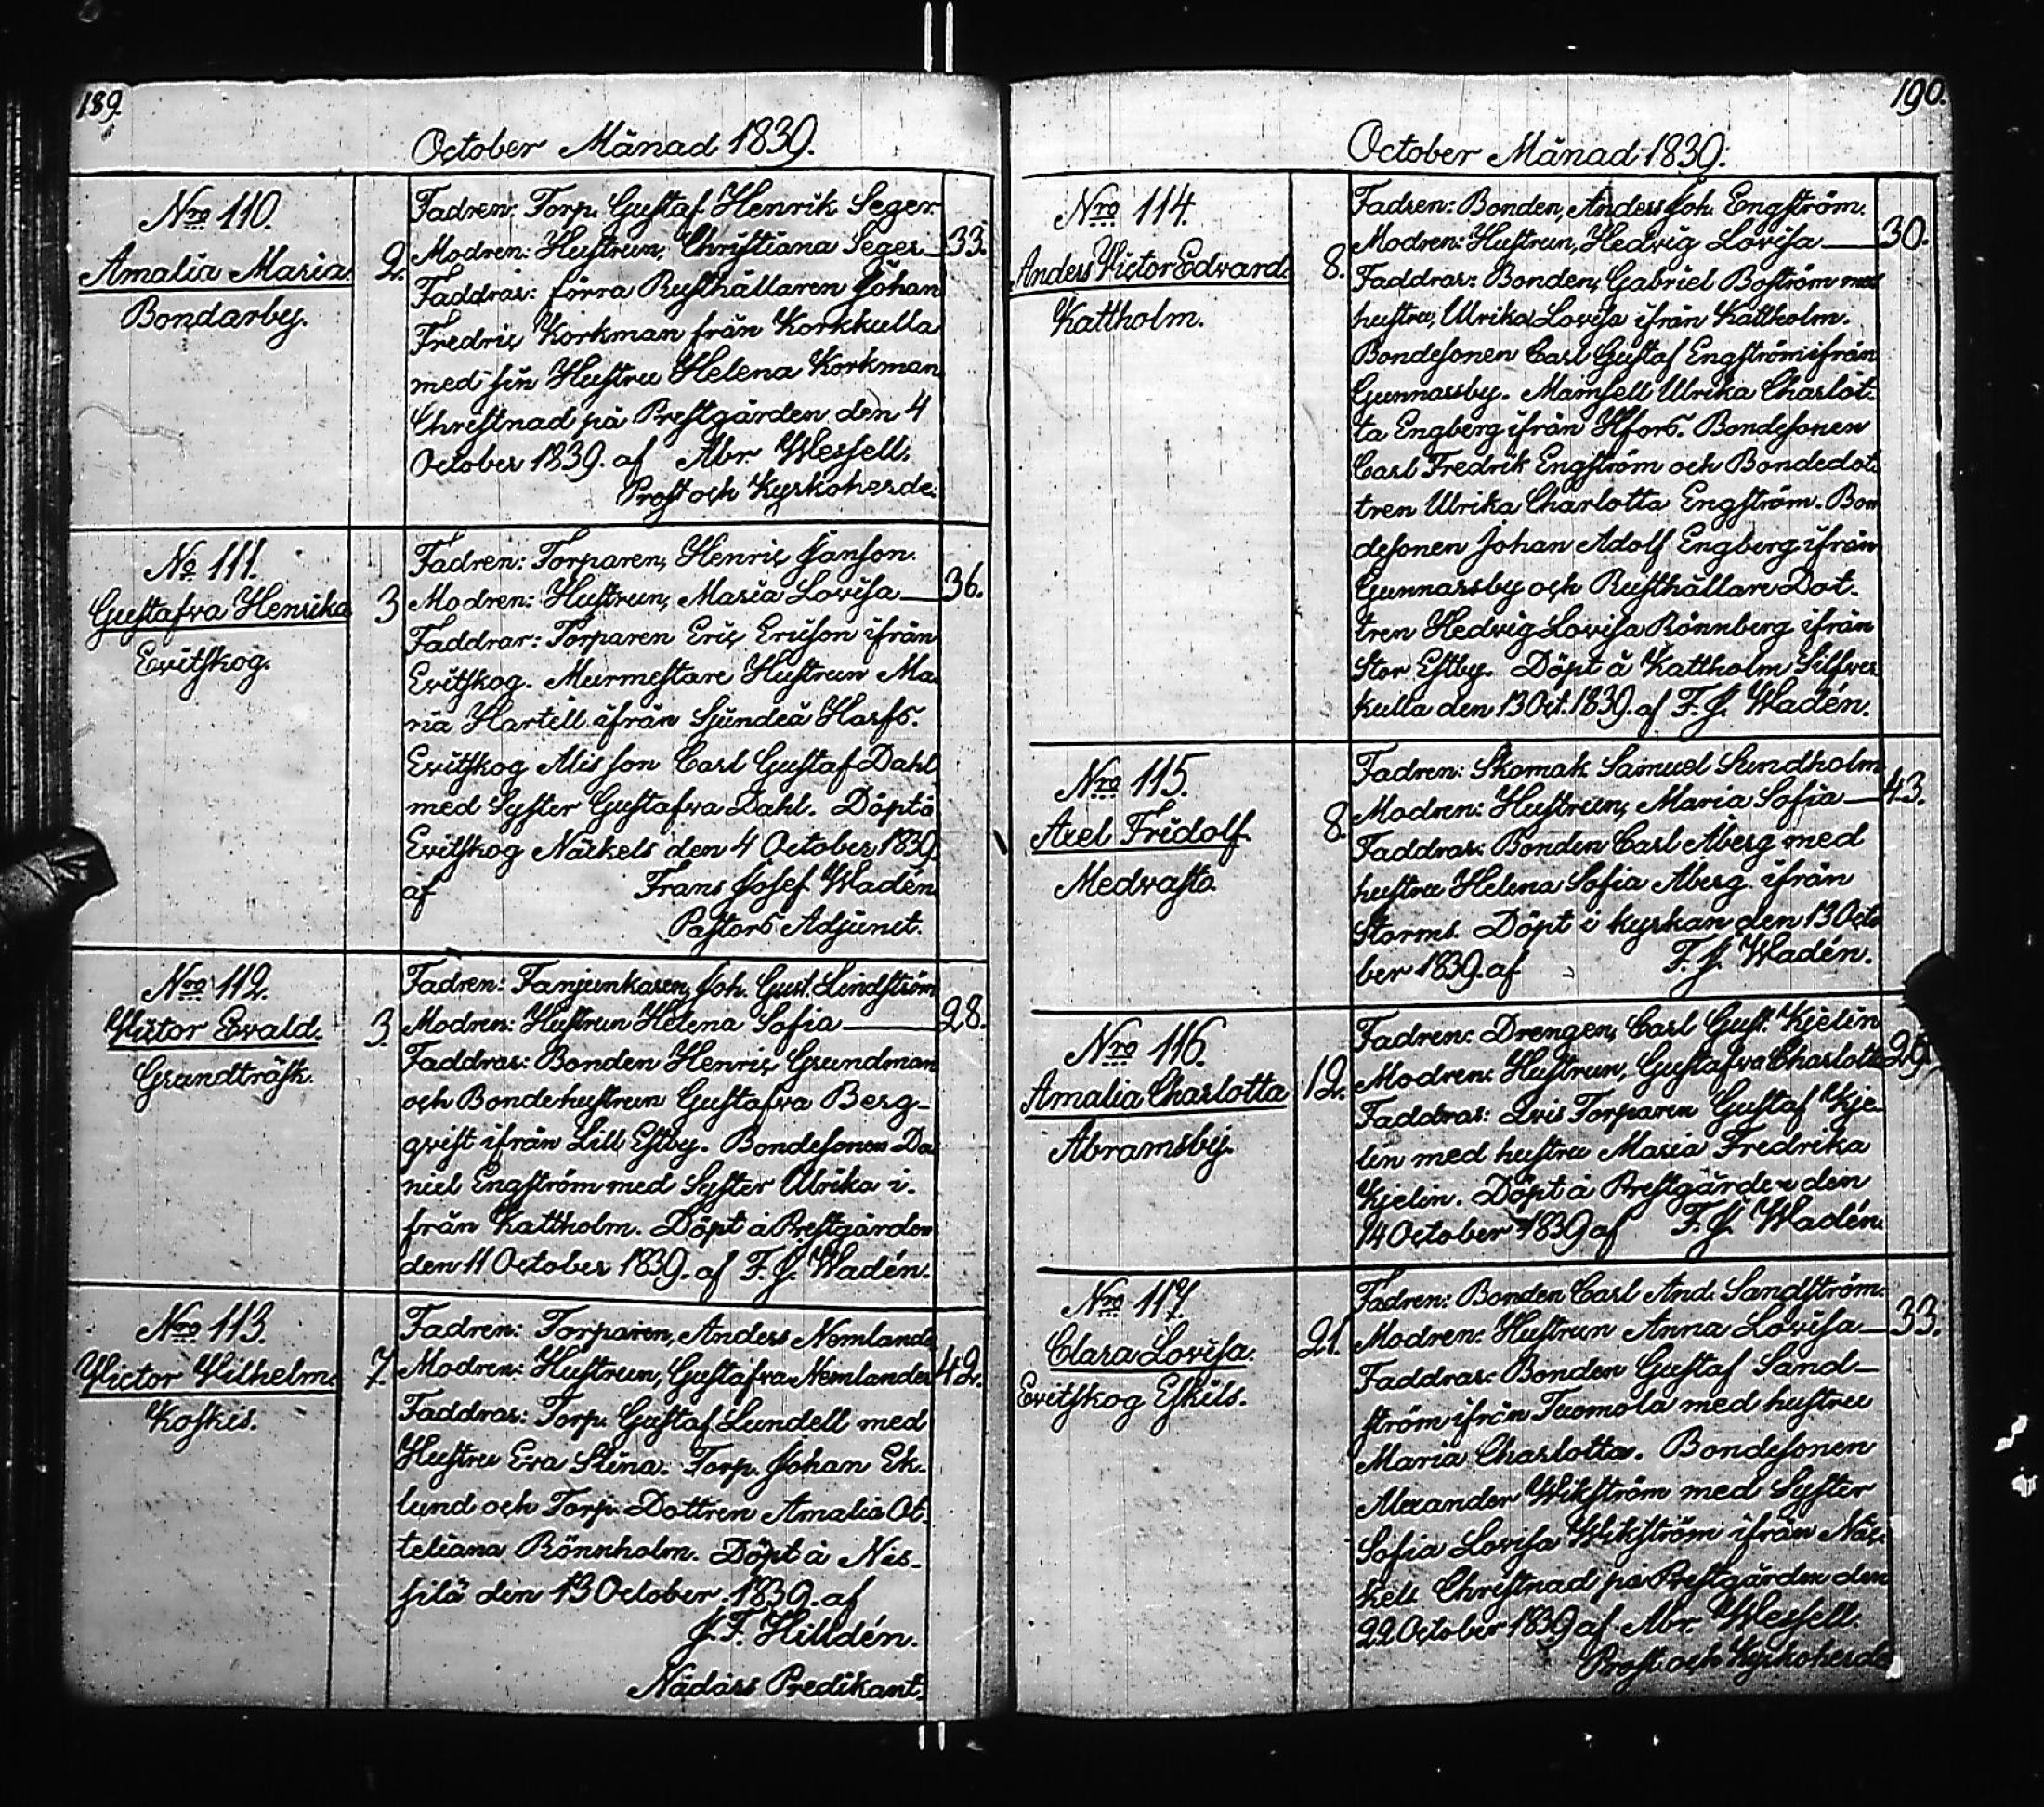 189.
October Månad 1839.
Nro 110.
Amalia Maria.
Bondarby.
2.
Fadren: Torp. Gustaf Henrik Seger.
Modren: Hustrun, Christiana Seger 33.
Faddrar: förra Rusthållaren Johan
Fredric Korkman från Korkkulla
med sin Hustru Helena Korkman
Christnad på Prestgården den 4
October 1839. af Abr. Wessell.
Prost och Kyrkoherde.
No 111.
Gustafva Henrika
Evitskog.
3
Fadren: Torparen, Henric Janson.
Modren: Hustrun, Maria Lovisa 36.
Faddrar: Torparen Eric Ericson ifrån
Evitskog. Murmestare Hustrun Ma-
ria Hartell ifrån Sjundeå Harfs.
Evitskog Alis son Carl Gustaf Dahl
med Syster Gustafva Dahl. Döpt å
Evitskog Näckels den 4 October 1839.
af Frans Josef Wadén
Pastors Adjunct.
Nro 112.
Victor Evald.
Grundträsk.
3.
Fadren: Fanjunkaren, Joh. Gust. Lindström
Modren: Hustrun Helena Sofia 28.
Faddrar: Bonden Henric Grundman
och Bondehustrun Gustafva Berg-
qvist ifrån Lill Estby. Bondesonen Da
niel Engström med Syster Ulrika i-
från Kattholm. Döpt å Prestgården
den 11 October 1839. af F. J. Wadén.
Nro 113.
Victor Vilhelm.
Koskis.
7.
Fadren: Torparen, Anders Nemlande
Modren: Hustrun, Gustafva Nemlander 42.
Faddrar: Torp. Gustaf Lundell med
Hustru Eva Stina. Torp. Johan Ek-
lund och Torp. Dottren Amalia Ot-
teliana Rönnholm. Döpt å Nis-
silä den 13 October 1839. af
J. F. Hilldén.
Nådårs Predikant.
190.
October Månad 1839.
Nro 114.
Anders Victor Edvard.
Kattholm.
8.
Fadren: Bonden, Anders Joh. Engström.
Modren: Hustrun, Hedvig Lovisa 30.
Faddrar: Bonden, Gabriel Boström med
hustru, Ulrika Lovisa ifrån Kattholm.
Bondesonen Carl Gustaf Engström ifrån
Gunnarsby. Mamsell Ulrika Charlot-
ta Engberg ifrån Hfors. Bondesonen
Carl Fredrik Engström och Bondedot-
tren Ulrika Charlotta Engström. Bon
desonen Johan Adolf Engberg ifrån
Gunnarsby och Rusthållare Dot-
tren Hedvig Lovisa Rönnberg ifrån
Stor Estby. Döpt å Kattholm Silfver
kulla den 13 Oct. 1839. af F. J. Wadén.
Nro 115.
Axel Fridolf.
Medvasto.
8.
Fadren: Skomak. Samuel Sundholm
Modren: Hustrun, Maria Sofia 43.
Faddrar: Bonden Carl Åberg med
hustru Helena Sofia Åberg ifrån
Storms. Döpt i kyrkan den 13 Octo
ber 1839. af F. J. Wadén.
Nro 116.
Amalia Charlotta
Abramsby.
12.
Fadren: Drengen, Carl Gust. Kjelin
Modren: Hustrun, Gustafva Charlotta
Faddrar: Qvis Torparen Gustaf Kje-
lin med hustru Maria Fredrika
Kjelin. Döpt å Prestgården den
14 October 1839 af F. J. Wadén.
Nro 117.
Clara Lovisa.
Evitskog Eskils.
21.
Fadren: Bonden Carl And. Sandström.
Modren: Hustrun Anna Lovisa 33.
Faddrar: Bonden Gustaf Sand-
ström ifrån Tuomola med hustru
Maria Charlotta. Bondesonen
Alexander Wikström med Syster
Sofia Lovisa Wikström ifrån Näc-
kels Christnad på Prestgården den
22 October 1839 af Abr. Wessell.
Prost och Kyrkoherde